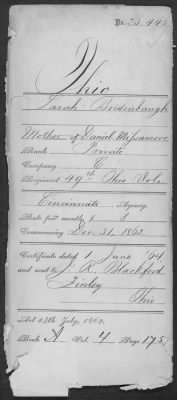 No 23.449
Ohio
Sarah Bridenbaugh
Mother of Daniel Missamore
Rank Private
Company C
Regiment 49th Ohio Vols
Cincinnati Agency
Rate per month, $ 8
Commencing Dec. 31, 1862
Certificate dated 1 June '64
and sent to J. R. Blackford
Finley
Ohio
Act 14th July, 1862.
Book A Vol. 4 Page 175